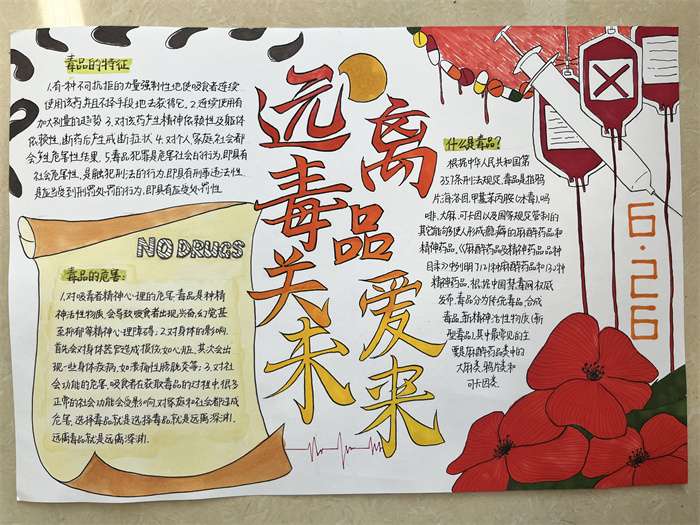 毒品的特征
1.有一种不可抗拒的力量强制性地使吸食者连续
使用该药,并且不择手段地去获得它。2.连续使用有
加大剂量的趋势 3.对该药产生精神依赖性及躯体
依赖性,断药后产生戒断症状 4.对个人、家庭、社会都
会产生危害性结果。5.毒品犯罪是危害社会的行为,即具有
社会危害性,是触犯刑法的行为,即具有刑事违法性,
是应当受到刑罚处罚的行为,即具有应受处罚性。
NO DRUGS
毒品的危害:
1.对吸毒者精神心理的危害:毒品是种精
神活性物质,会导致吸食者出现兴奋、幻觉甚
至抑郁等精神心理障碍; 2.对身体的影响,
首先会对身体器官造成损伤,如心脏,其次会出
现一些身体疾病,如溃疡性膀胱炎等; 3.对社
会功能的危害,吸食者在获取毒品的过程中,很多
正常的社会功能会受影响,对家庭和社会都造成
危害。选择毒品就是选择毒品就是远离深渊,
远离毒品就是远离深渊.
远离
毒品
关爱
未来
什么是毒品?
根据中华人民共和国第
357条刑法规定,毒品是指鸦
片、海洛因、甲基苯丙胺(冰毒)、吗
啡、大麻、可卡因以及国家规定管制的
其它能够使人形成瘾癖的麻醉药品和
精神药品。《麻醉药品及精神药品品种
目录》中列明了121种麻醉药品和132种
精神药品。根据中国禁毒网权威
发布,毒品分为传统毒品、合成
毒品、新精神活性物质(新
型毒品),其中最常见的主
要是麻醉药品类中的
大麻类、鸦片类和
可卡因类.
6.26